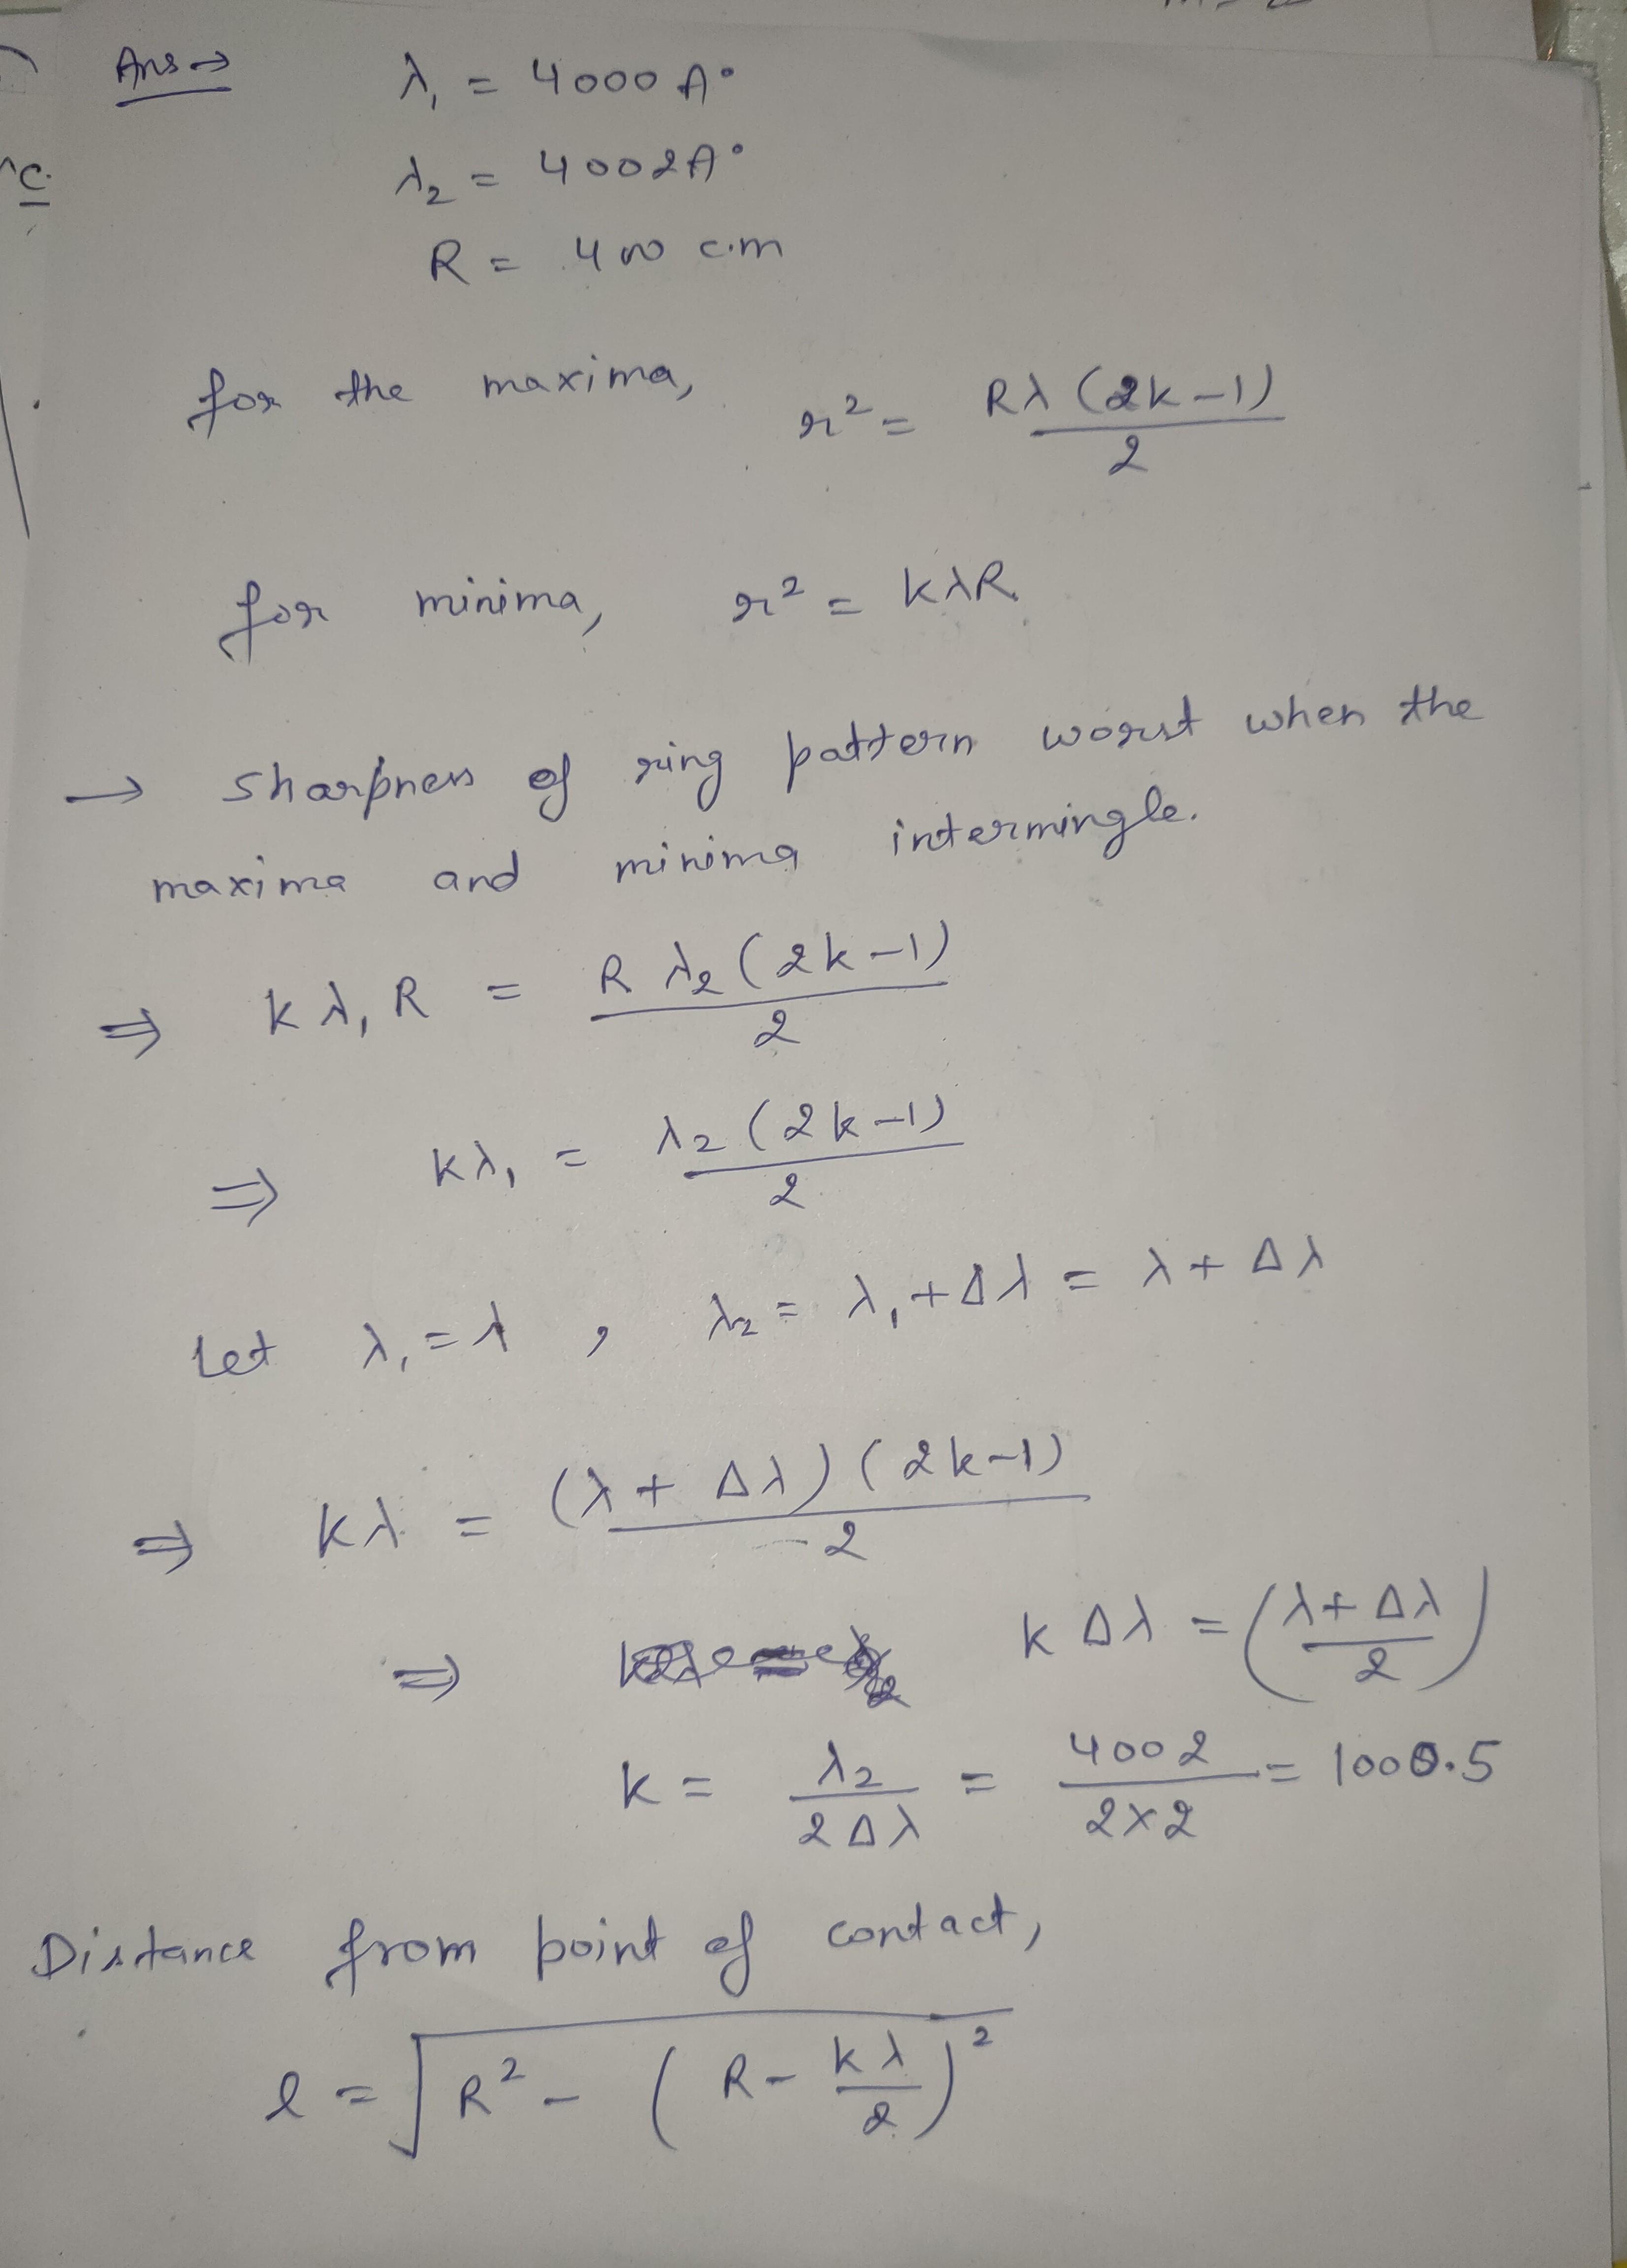 Ans → λ₁ = 4000 A°
c.
λ₂ = 4002 A°
R = 400 c.m
for the maxima, r² = Rλ(2k-1)/2
for minima, r² = kλR
→ sharpness of ring pattern worst when the
maxima and minima intermingle.
⇒ kλ₁R = Rλ₂(2k-1)/2
⇒ kλ₁ = λ₂(2k-1)/2
Let λ₁ = λ , λ₂ = λ₁+Δλ = λ+Δλ
⇒ kλ = (λ+Δλ)(2k-1)/2
⇒ kΔλ = (λ+Δλ/2)
k = λ₂/2Δλ = 4002/2×2 = 1000.5
Distance from point of contact,
l = √R² - (R - kλ/2)²